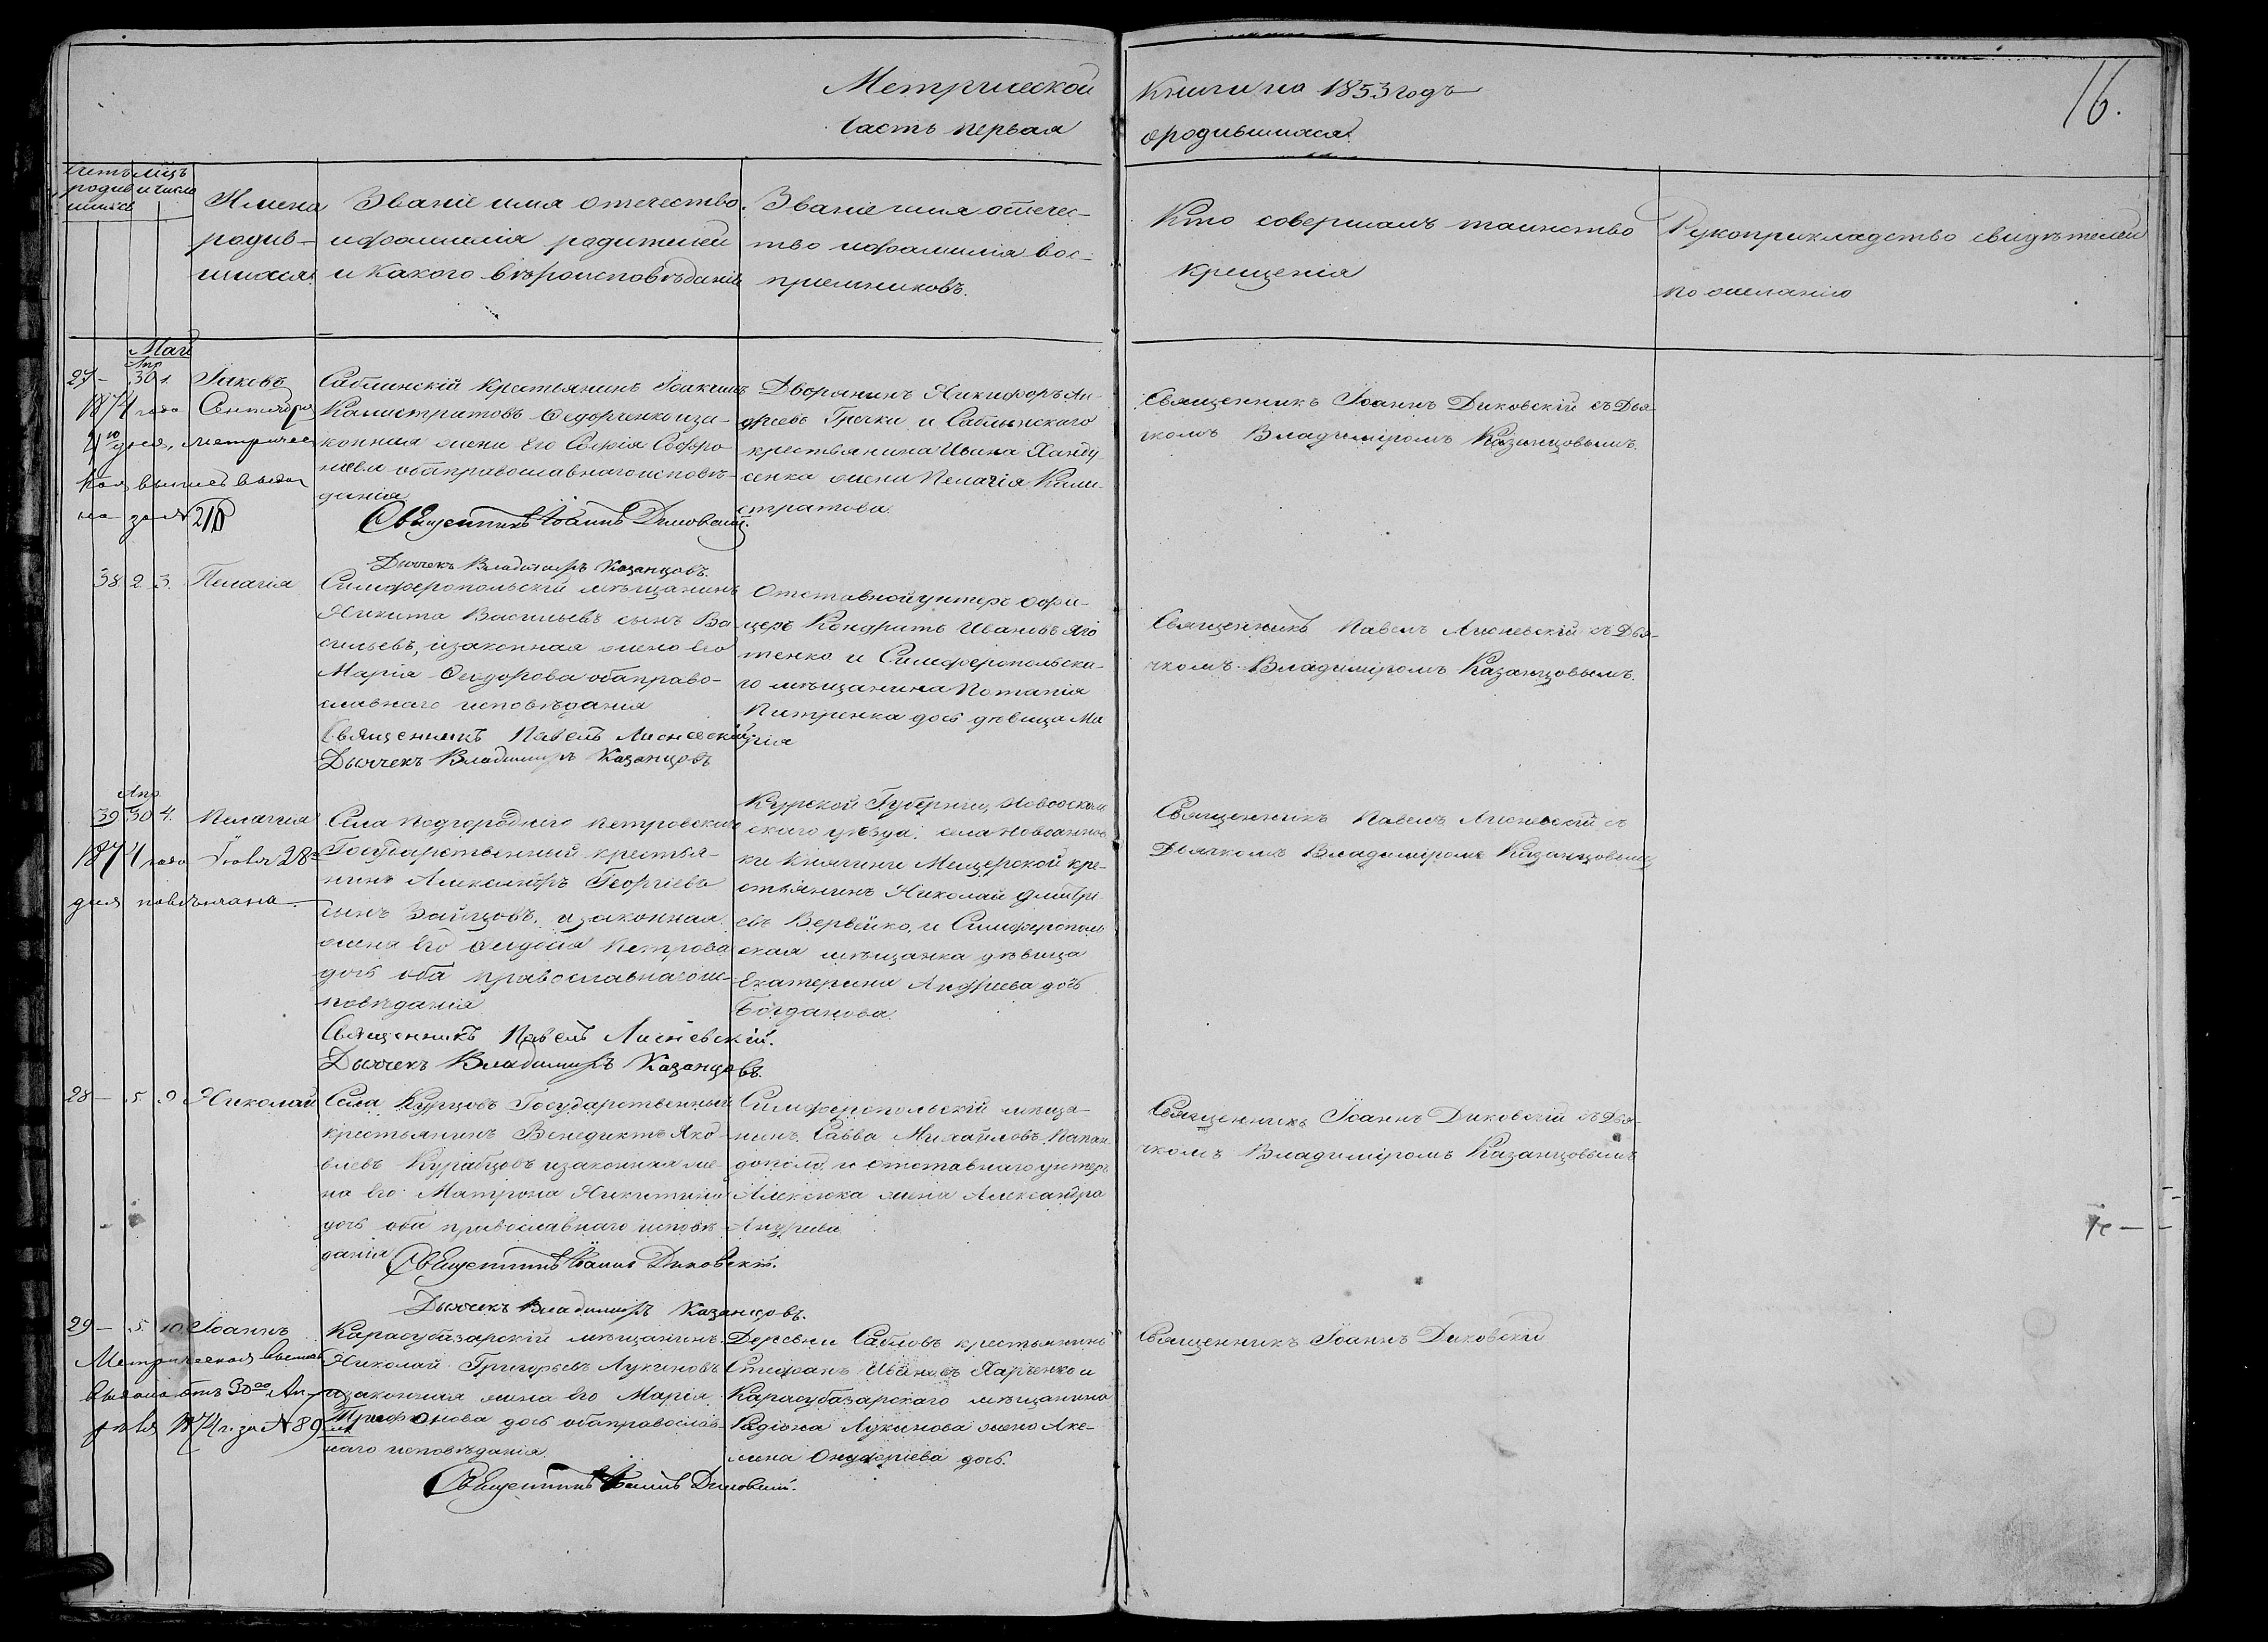 Метрической книги на 1853 годъ
16.
Часть первая о родившихся.
Счетъ родившихся
мцъ и число
Имена
родив-
шихся.
Званіе имя отечество.
и фамилія родителей
и какого вѣроисповѣданія
Званіе имя отечес-
тво и фамилія вос-
пріемниковъ.
Кто совершалъ таинство
крещенія
Рукоприкладство свидѣтелей
по желанію
Май
Апр.
27 – 30 1. Іаковъ
1874 года Сентября
дня, метричес
кая выпись выда
на за № 218
Саблинскій крестьянинъ Іоакимъ
Калистратовъ Ѳедорченко и за-
конная жена его Софія Софро
нова оба православнаго исповѣ-
данія
Священникъ Іоаннъ Диковскій.
Дьячекъ Владимиръ Казанцовъ.
Дворянинъ Никифоръ Ан-
дреевъ Гречки и Саблынскаго
крестьянина Ивана Ханду
сенка жена Пелагія Кали-
стратова.
Священникъ Іоаннъ Диковскій съ Дья-
чкомъ Владиміромъ Казанцовымъ.
38 2 3. Пелагія
Симферопольскій мѣщанинъ
Никита Васильевъ сынъ Ва-
сильевъ, и законная жена его
Марія Ѳеодорова оба право-
славнаго исповѣданія
Священникъ Павелъ Лисневскій
Дьячекъ Владимиръ Казанцовъ
Отставной унтеръ офи-
церъ Кондратъ Ивановъ
тенко и Симферопольска-
го мѣщанина Потапія
Питренка дочь дѣвица Ма
рія
Священникъ Павелъ Лисневскій съ Дья-
чкомъ Владиміромъ Казанцовымъ.
Апр.
39 30 4. Пелагія
1874 года 28
дня повѣнчана.
Села Подгороднего Петровскаго
Государственный крестья-
нинъ Александръ Георгіевъ
сынъ Зайцовъ, и законная
жена его Ѳеодосія Петрова
дочь оба православнаго ис-
повѣданія
Священникъ Павелъ Лисневскій.
Дьячекъ Владимиръ Казанцовъ.
Курской Губерніи, Новооскол
скаго уѣзда, села
ки Княгини Мещерской кре-
стьянинъ Николай Дмитрі
евъ Вервейко, и Симферополь
ская мѣщанка дѣвица
Екатерина Андреева дочь
Богданова.
Священникъ Павелъ Лисневскій съ
Дьячкомъ Владиміромъ Казанцовымъ
28 – 5 9 Николай
Села Курцовъ Государственный
крестьянинъ Венедиктъ Яко-
влевъ и законная же-
на его Матрона Никитина
дочь оба православнаго исповѣ-
данія
Священникъ Іоаннъ Диковскій.
Дьячекъ Владимиръ Казанцовъ.
Симферопольскій мѣща-
нинъ Савва Михайловъ Папан-
дополо, и отставнаго унтеръ
Алексюка жена Александра
Андреева
Священникъ Іоаннъ Диковскій съ Дья-
чкомъ Владиміромъ Казанцовымъ
29 – 5 10 Іоаннъ
Метрическая выпись
выдана отъ 30го Ап-
рѣля 1874 г. за № 89
Карасубазарскій мѣщанинъ
Николай Григорьевъ Лукиновъ
и законная жена его Марія
Трифонова дочь оба православ-
наго исповѣданія.
Священникъ Іоаннъ Диковскій.
Деревни Сабловъ крестьянинъ
Стефанъ Ивановъ Харченко и
Карасубазарскаго мѣщанина
Радіона Лукинова жена Аке-
лина Онуфріева дочь.
Священникъ Іоаннъ Диковскій